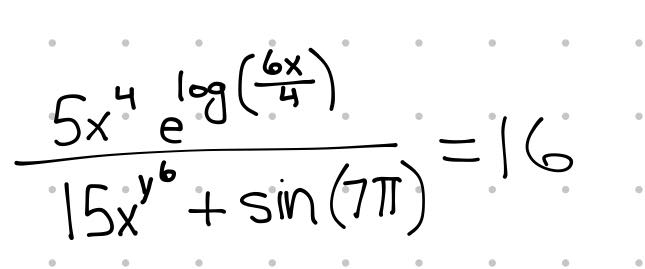 \frac{5x^4 e^{\log(\frac{6x}{4})}}{15x^{y^6} + \sin(7\pi)} = 16